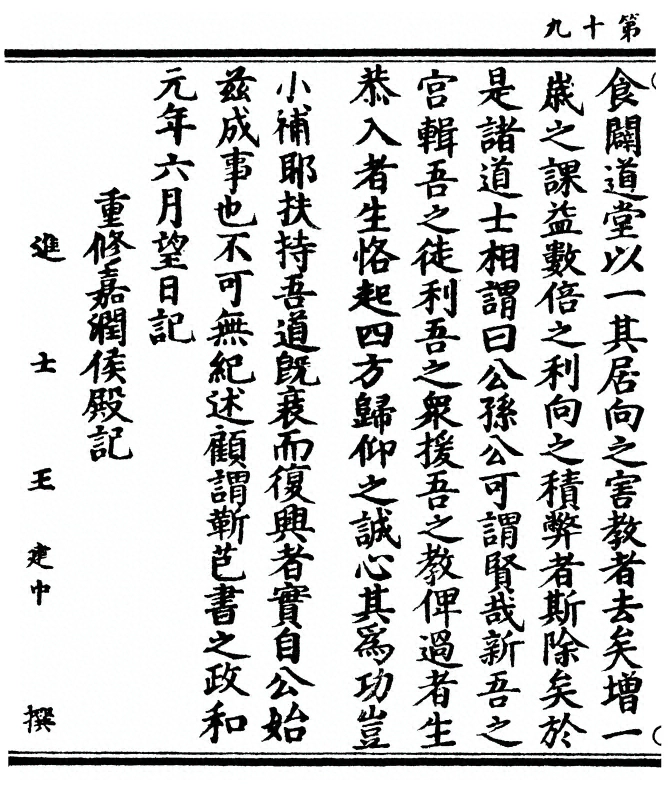 第十九
食闢道堂以一其居向之害教者去矣增一
歲之課益數倍之利向之積弊者斯除矣於
是諸道士相謂曰公孫公可謂賢哉新吾之
宮輯吾之徒利吾之衆援吾之教俾過者生
恭入者生恪起四方歸仰之誠心其爲功豈
小補耶扶持吾道旣衰而復興者實自公始
茲成事也不可無紀述顧謂蘄芑書之政和
元年六月望日記
重修嘉潤侯殿記
進士王建中撰